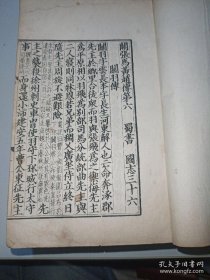 關張馬黃趙傳第六 蜀書 國志三十六
關羽傳
關羽字雲長本字長生河東解人也亡命奔涿郡
先主於鄉里合徒眾而羽與張飛為之禦侮先主
為平原相以羽飛為別部司馬分統部曲先主與
二人寢則同牀恩若兄弟而稠人廣坐侍立終日
隨先主周旋不避艱險
主之襲殺徐州刺史車冑使羽守下邳城行太守
事
而身還小沛建安五年曹公東征先主